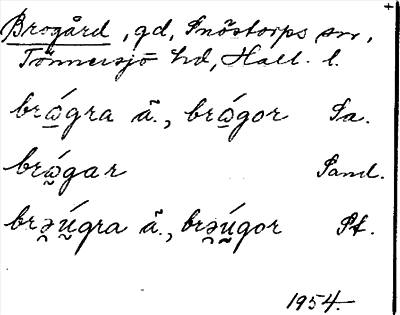 Brogård, gd, Snöstorps sn,
Tönnersjö hd, Hall. l.
brώ̲gra ä., brώ̲gor Sa.
brώ̮gar Sand.
brə̯ú̮gra ä., brə̯ú̮gor Pt.
1954.